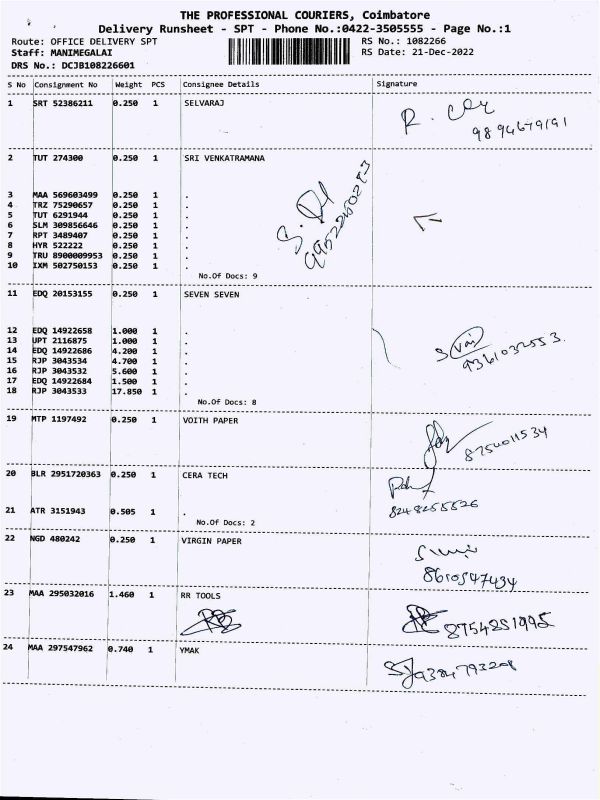 THE PROFESSIONAL COURIERS, Coimbatore
Delivery Runsheet - SPT - Phone No.:0422-3505555 - Page No.:1
Route: OFFICE DELIVERY SPT
RS No.: 1082266
Staff: MANIMEGALAI
RS Date: 21-Dec-2022
DRS No.: DCJB108226601
S No Consignment No Weight PCS Consignee Details Signature
1 SRT 52386211 0.250 1 SELVARAJ
R.
9894679191
2 TUT 274300 0.250 1 SRI VENKATRAMANA
3 MAA 569603499 0.250 1 .
4 TRZ 75290657 0.250 1 .
5 TUT 6291944 0.250 1 .
6 SLM 309856646 0.250 1 .
7 RPT 3489407 0.250 1 .
8 HYR 522222 0.250 1 .
9 TRU 8900009953 0.250 1 .
10 IXM 502750153 0.250 1 .
No.Of Docs: 9
11 EDQ 20153155 0.250 1 SEVEN SEVEN
12 EDQ 14922658 1.000 1 .
13 UPT 2116875 1.000 1 .
14 EDQ 14922686 4.200 1 .
15 RJP 3043534 4.700 1 .
16 RJP 3043532 5.600 1 .
17 EDQ 14922684 1.500 1 .
18 RJP 3043533 17.850 1 .
9361032553
No.Of Docs: 8
19 MTP 1197492 0.250 1 VOITH PAPER
8754011534
20 BLR 2951720363 0.250 1 CERA TECH
21 ATR 3151943 0.505 1 .
8248255526
No.Of Docs: 2
22 NGD 480242 0.250 1 VIRGIN PAPER
8610547434
23 MAA 295032016 1.460 1 RR TOOLS
8754881995
24 MAA 297547962 0.740 1 YMAK
9384793208